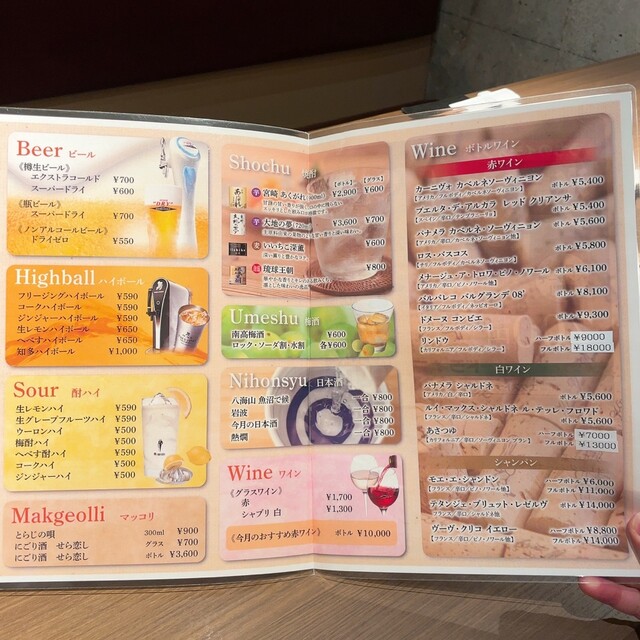 Beer ビール
《樽生ビール》
エクストラコールド ¥700
スーパードライ ¥600
《瓶ビール》
スーパードライ ¥700
《ノンアルコールビール》
ドライゼロ ¥550
Highball ハイボール
フリージングハイボール ¥590
コークハイボール ¥590
ジンジャーハイボール ¥590
生レモンハイボール ¥650
へべすハイボール ¥650
知多ハイボール ¥1,000
Sour 酎ハイ
生レモンハイ ¥590
生グレープフルーツハイ ¥590
ウーロンハイ ¥500
梅酎ハイ ¥500
へべす酎ハイ ¥590
コークハイ ¥500
ジンジャーハイ ¥500
Makgeolli マッコリ
とらじの唄 300ml ¥900
にごり酒 せら恋し グラス ¥700
にごり酒 せら恋し ボトル ¥3,600
Shochu 焼酎
【ボトル】 【グラス】
芋 宮崎 あくがれ ¥2,900 ¥600
芋 大地の夢 ¥3,600 ¥700
麦 いいちこ深薫 ¥600
琉球王朝 ¥800
Umeshu 梅酒
南高梅酒 ¥600
ロック・ソーダ割・水割 各¥600
Nihonsyu 日本酒
八海山 魚沼で候 一合 ¥800
岩波 一合 ¥800
今月の日本酒 一合 ¥800
熱燗 一合 ¥800
Wine ワイン
《グラスワイン》
赤 ¥1,700
シャブリ 白 ¥1,300
《今月のおすすめ赤ワイン》 ボトル ¥10,000
Wine ボトルワイン
赤ワイン
カーニヴォ カベルネソーヴィニヨン ボトル ¥5,400
プエルタ・デ・アルカラ レッド クリアンサ ボトル ¥5,400
パナメラ カベルネ・ソーヴィニヨン ボトル ¥5,600
ロス・パスコス ボトル ¥5,800
メナージュ・ア・トロワ ピノ・ノワール ボトル ¥6,100
バルバレコ バルグランデ 08' ボトル ¥8,100
ドメーヌ コンビエ ボトル ¥9,300
リンドウ ハーフボトル ¥9000
フルボトル ¥18000
白ワイン
パナメラ シャルドネ ボトル ¥5,600
ルイ・マックス・シャルドネ ル・テッレ・フロワド ボトル ¥5,600
あさつゆ ハーフボトル ¥7000
フルボトル ¥13000
シャンパン
モエ・エ・シャンドン ハーフボトル ¥6,000
フルボトル ¥11,000
テタンジェ・ブリュット・レゼルヴ フルボトル ¥14,000
ヴーヴ・クリコ イエロー ハーフボトル ¥8,800
フルボトル ¥14,000